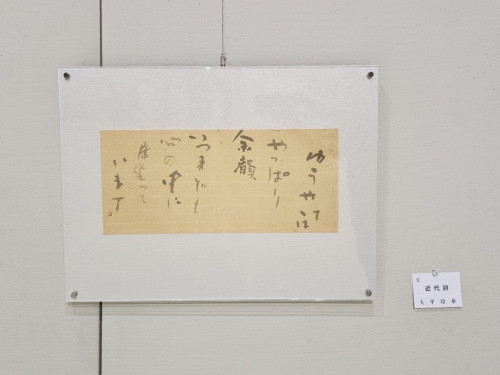 ゆうやけは
やっぱり
余
いつまでも
心の中に
って
います。
近代詩